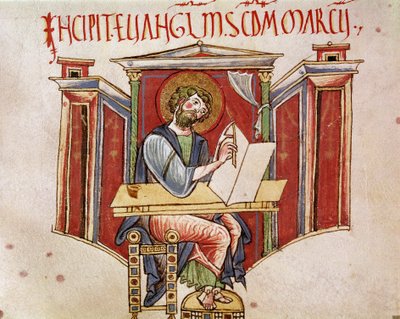 INCIPIT·EVANGLM·SCDM MARCU·,